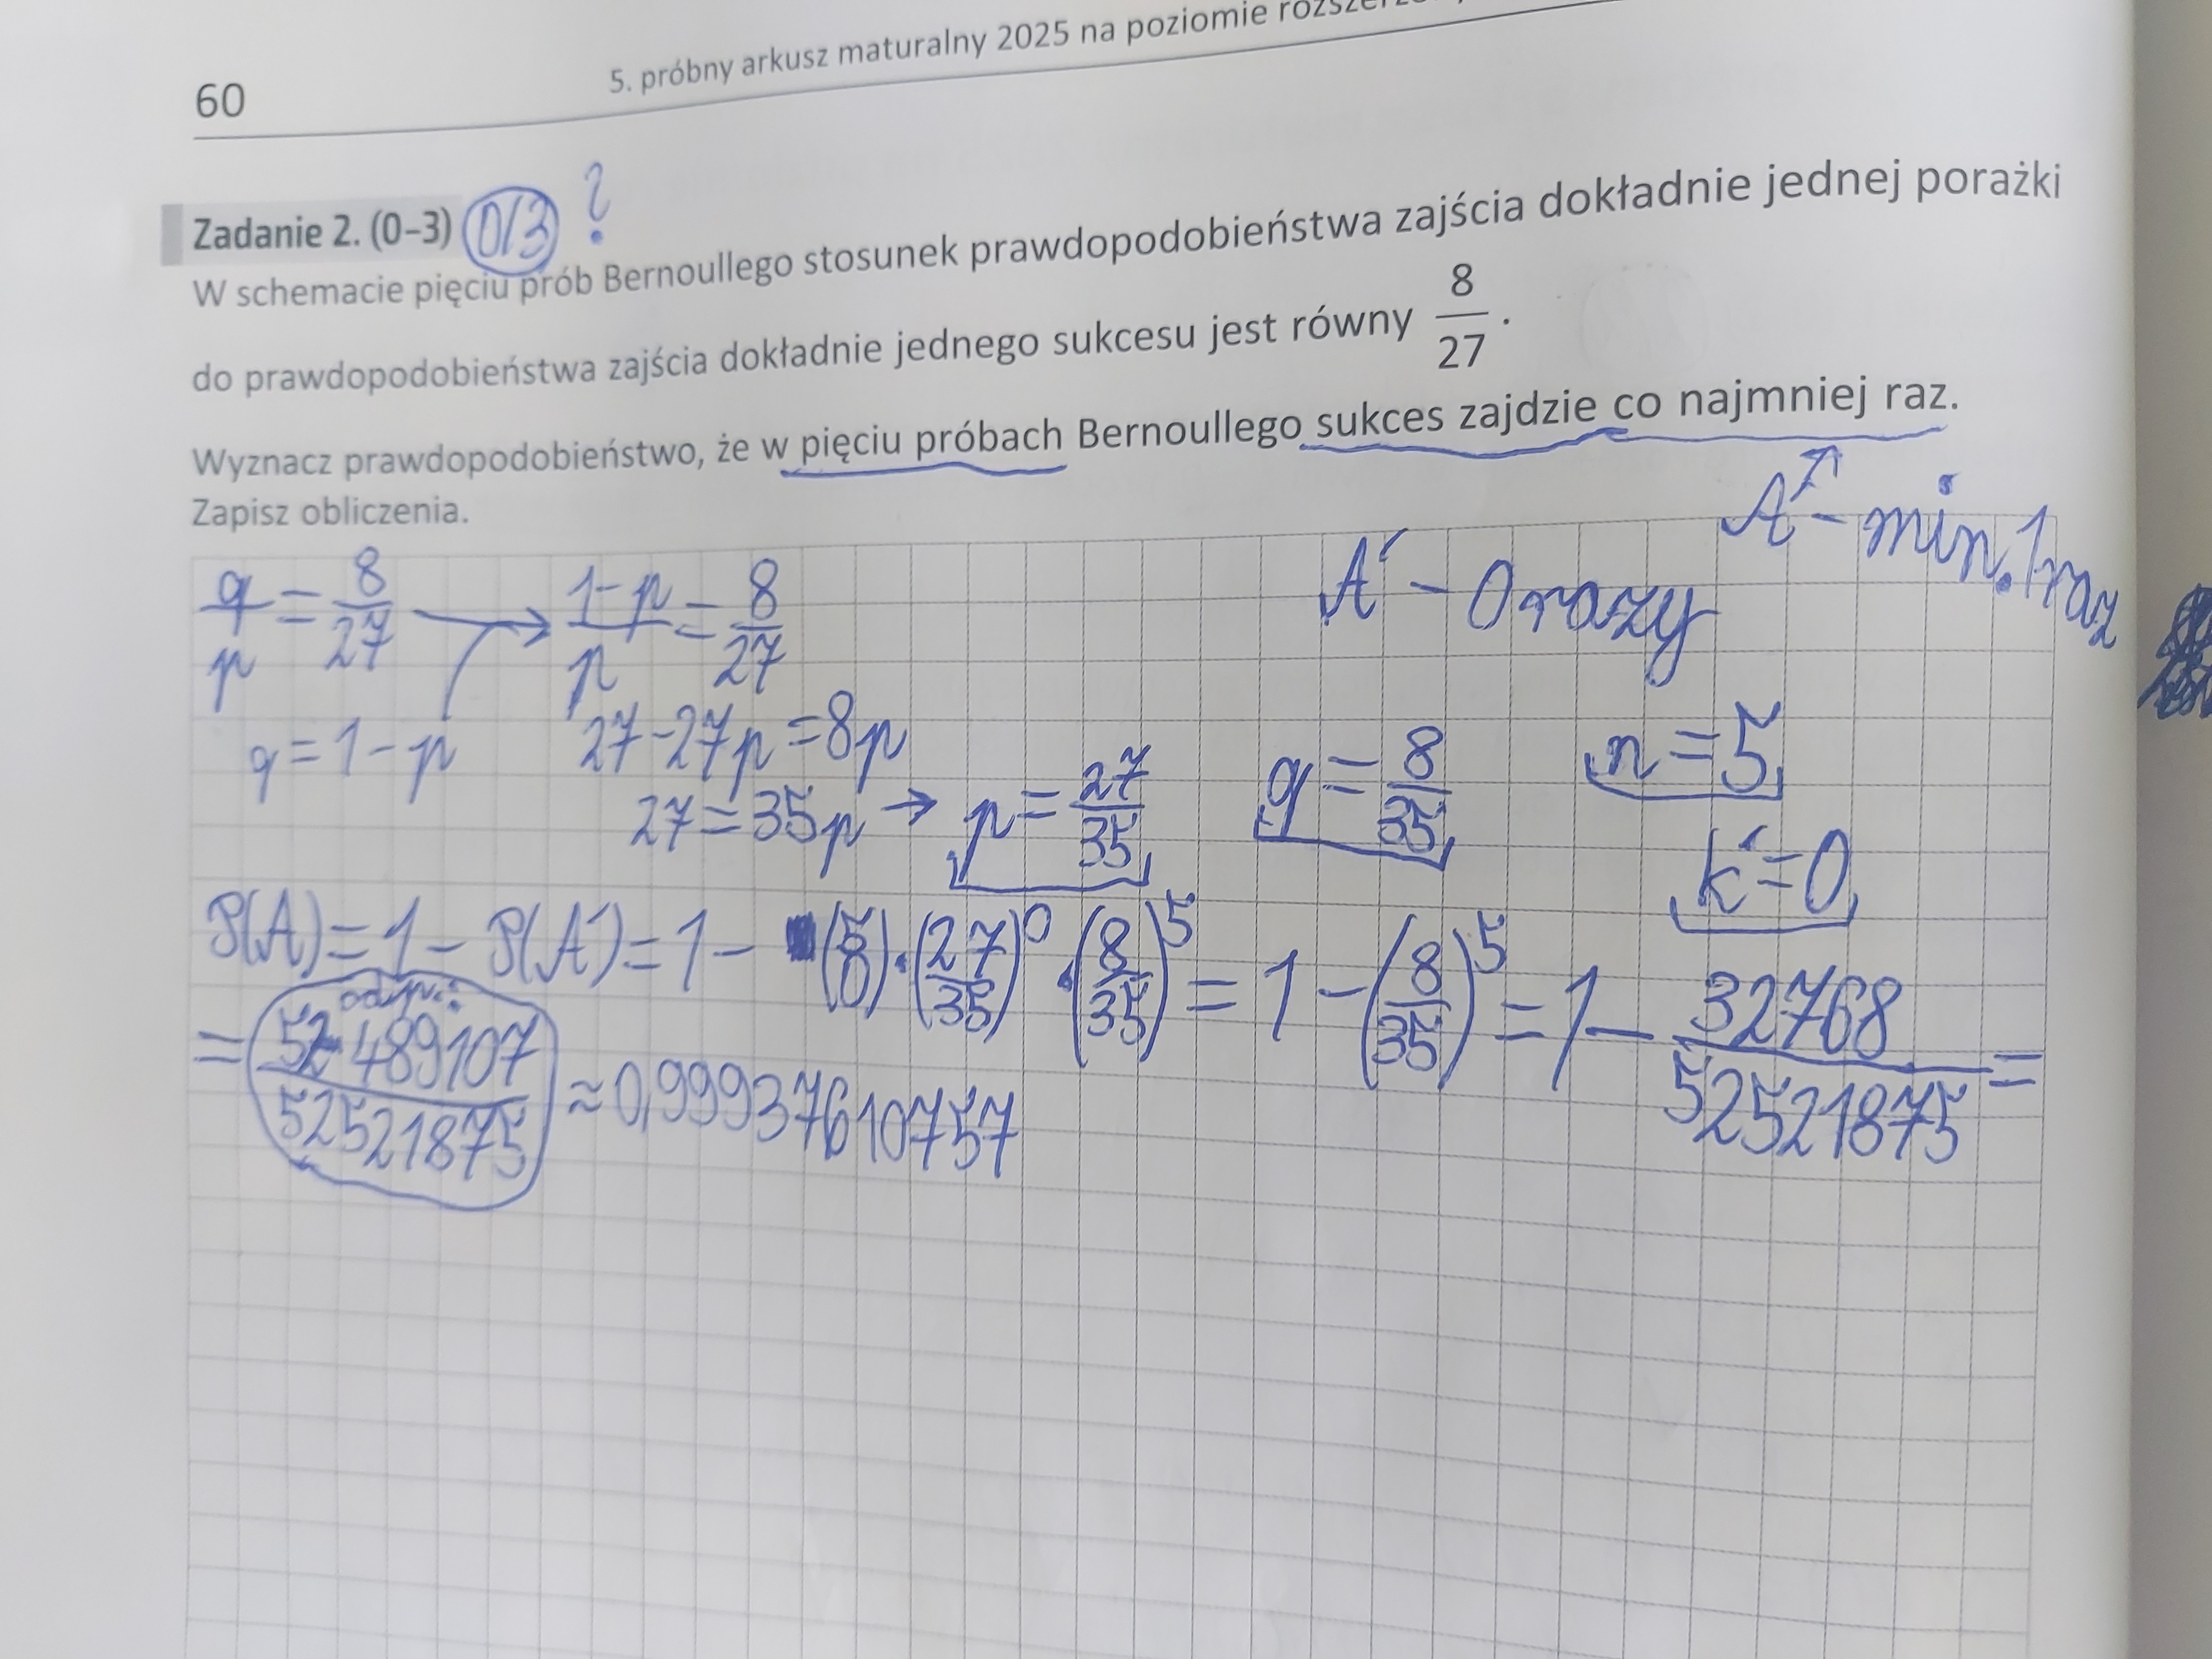 60
5. próbny arkusz maturalny 2025 na poziomie
Zadanie 2. (0–3) 0/3 ?
W schemacie pięciu prób Bernoullego stosunek prawdopodobieństwa zajścia dokładnie jednej porażki
do prawdopodobieństwa zajścia dokładnie jednego sukcesu jest równy 8/27.
Wyznacz prawdopodobieństwo, że w pięciu próbach Bernoullego sukces zajdzie co najmniej raz.
Zapisz obliczenia.
A - min. 1 raz
A' - 0 razy
q/p = 8/27 → (1-p)/p = 8/27
q = 1 - p
27 - 27p = 8p
27 = 35p → p = 27/35 q = 8/35 n = 5
k' = 0
P(A) = 1 - P(A') = 1 - (5 0) · (27/35)^0 · (8/35)^5 = 1 - (8/35)^5 = 1 - 32768/52521875 =
odp.:
= 52489107/52521875 ≈ 0,99937610757